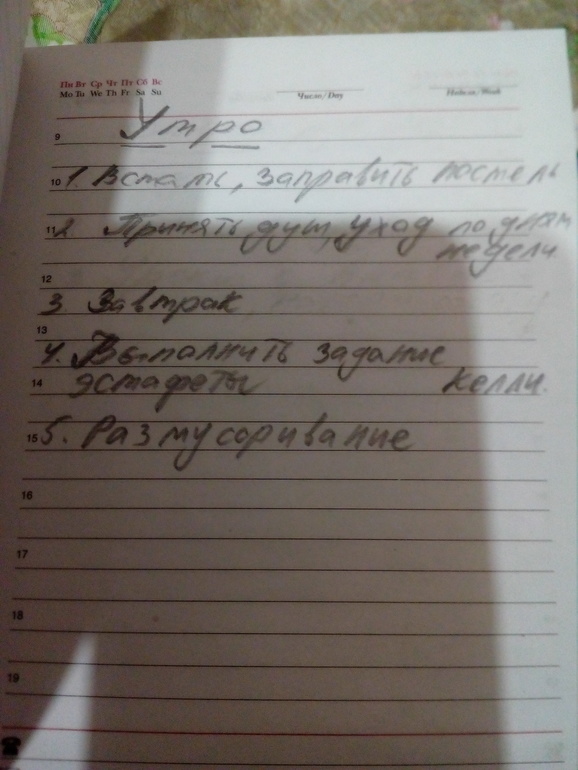 Пн Вт Ср Чт Пт Сб Вс
Mo Tu We Th Fr Sa Su
Число/Day
Неделя/Week
9 Утро
10 1. Встать, заправить постель
11 2. Принять душ, уход по дням
недели
12
3 Завтрак
13
4. Выполнить задание
14 эстафеты Келли.
15 5. Размусоривание
16
17
18
19